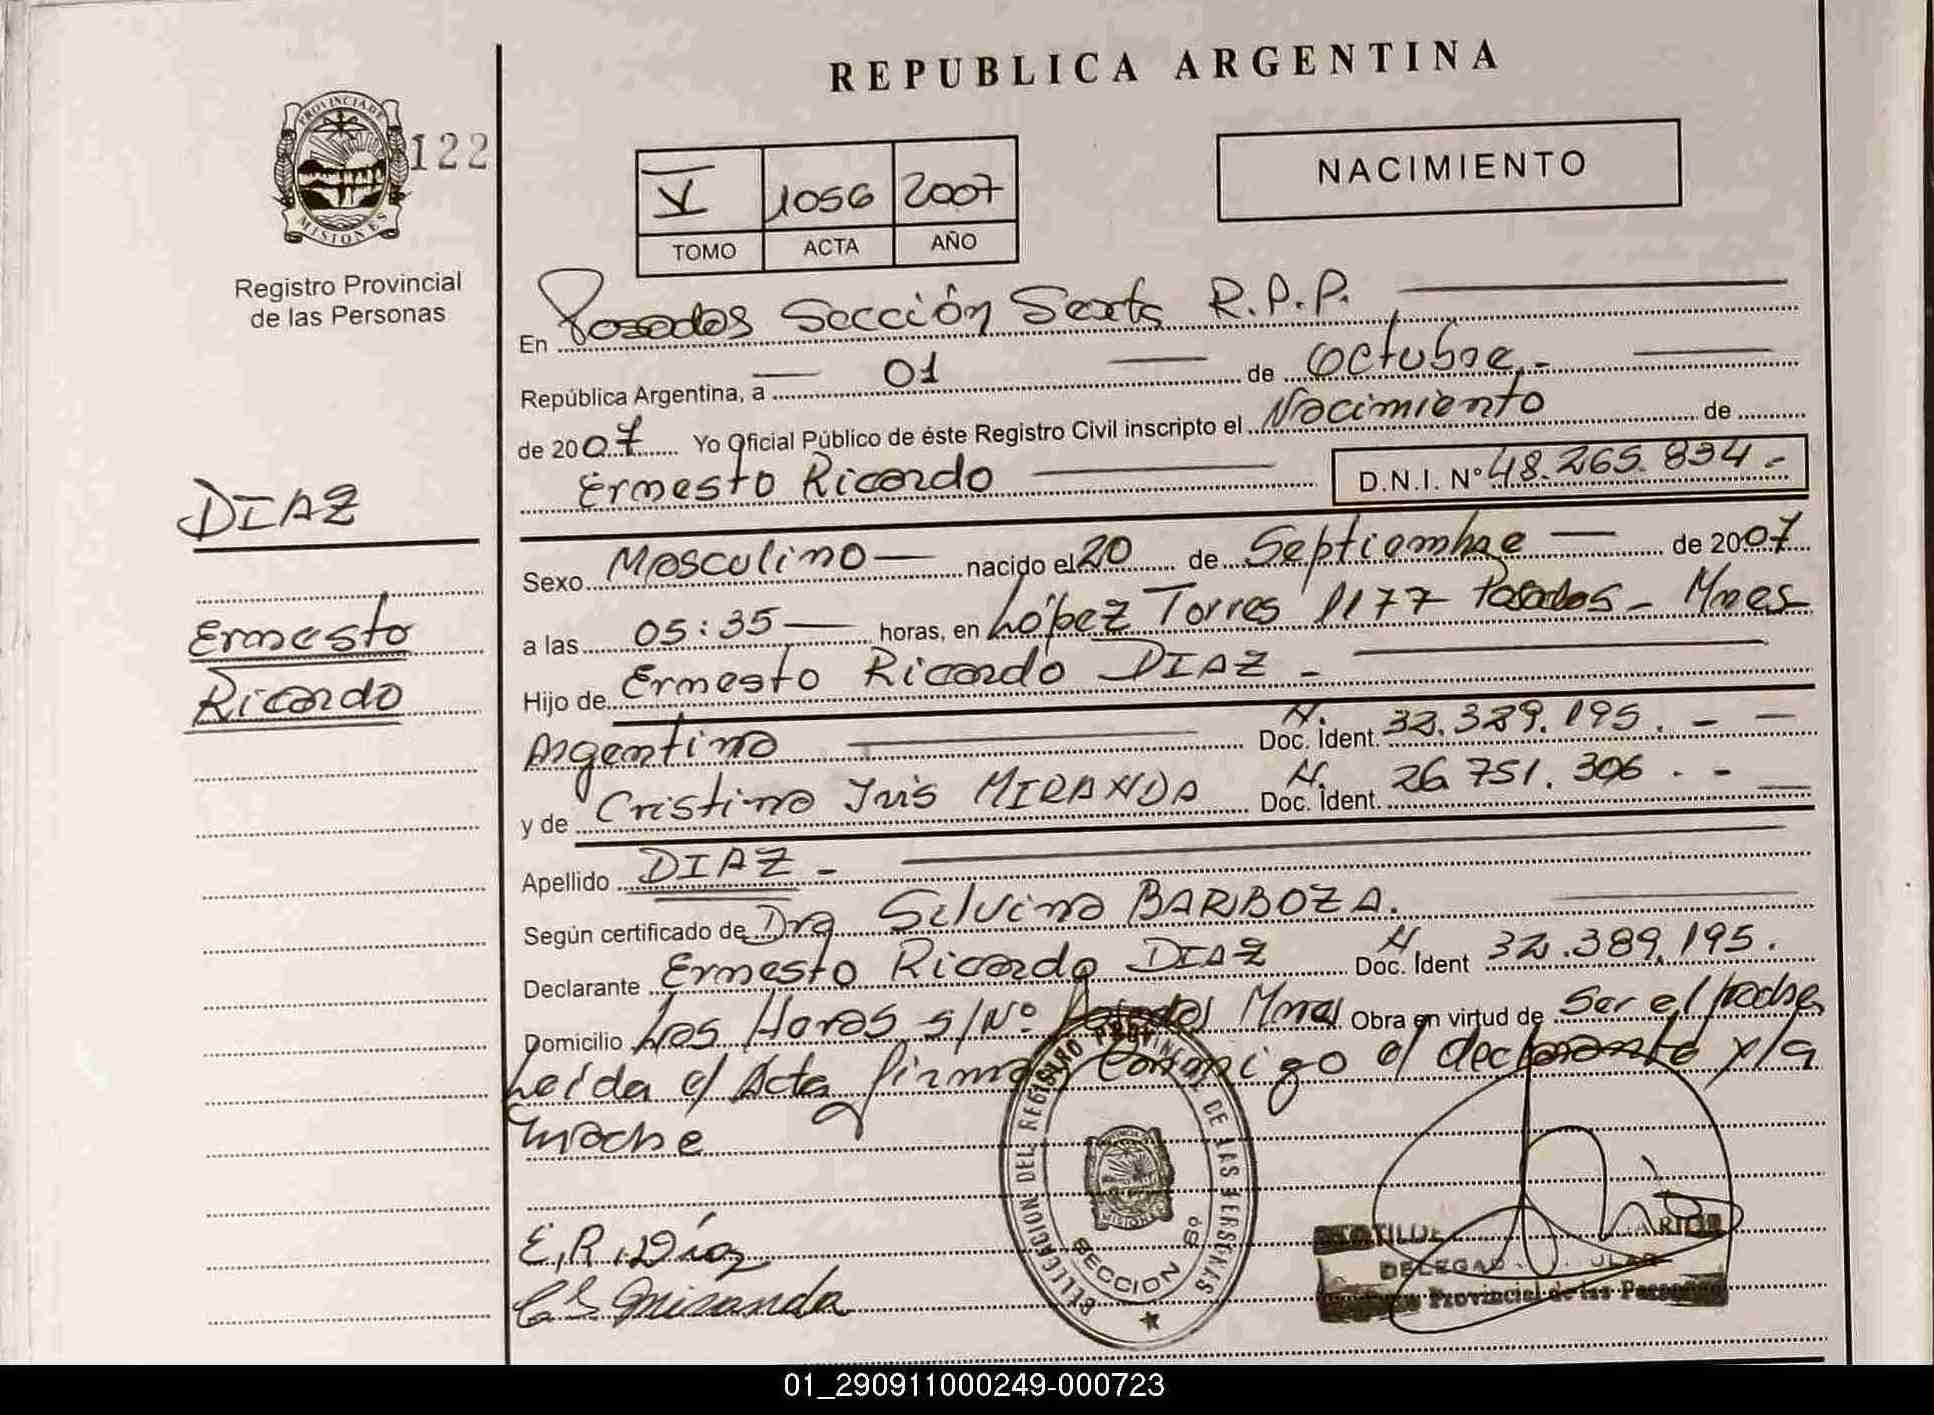 REPUBLICA ARGENTINA
PROVINCIA DE
MISIONES
122
Registro Provincial
de las Personas
V 1056 2007
TOMO ACTA AÑO
NACIMIENTO
En Posadas Sección Sexta R.P.P.
República Argentina, a 01 de Octubre.-
de 2007 Yo Oficial Público de éste Registro Civil inscripto el Nacimiento de
Ernesto Ricardo D.N.I. Nº 48.265.834-
DIAZ
Ernesto
Ricardo
Sexo Masculino nacido el 20 de Septiembre de 2007
a las 05:35 horas, en López Torres 1177 Posadas - Mnes
Hijo de Ernesto Ricardo DIAZ -
Argentino Doc. Ident. N. 32.389.195. -
y de Cristina Inis MIRANDA Doc. Ident. N. 26.751.306. -
Apellido DIAZ -
Según certificado de Dra Silvina BARBOZA.
Declarante Ernesto Ricardo DIAZ Doc. Ident N 32.389.195.
Domicilio Las Horas s/Nº Posadas Mnes Obra en virtud de Ser el padre
Leída el Acta firma conmigo el declarante y la
madre
E.R. Díaz
Miranda
DELEGACION DEL REGISTRO PROVINCIAL DE LAS PERSONAS
MISIONES
SECCION 6º
Provincial de las Personas
01_290911000249-000723